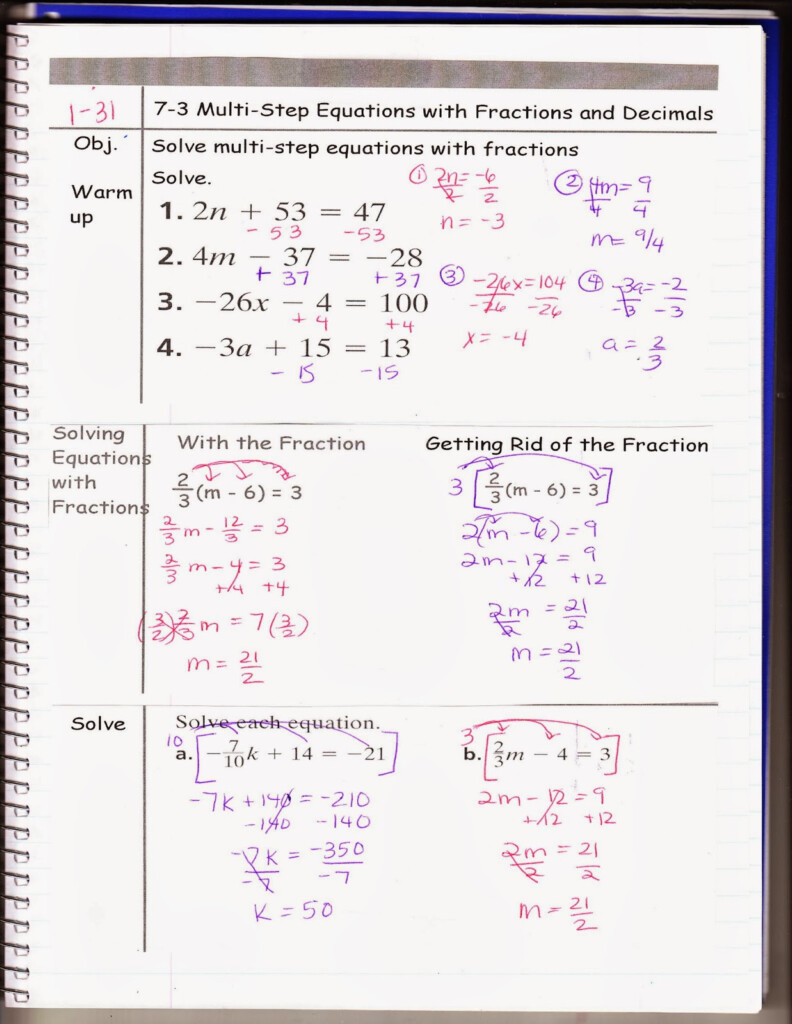 1-31
7-3 Multi-Step Equations with Fractions and Decimals
Obj.
Solve multi-step equations with fractions
Warm
up
Solve.
1. 2n + 53 = 47
- 53 -53
2. 4m - 37 = -28
+ 37 +37
3. -26x - 4 = 100
+ 4 +4
4. -3a + 15 = 13
- 15 -15
① 2n = -6
2 2
n = -3
② 4m = 9
4 4
m = 9/4
③ -26x = 104
-26 -26
x = -4
④ -3a = -2
-3 -3
a = 2/3
Solving
Equations
with
Fractions
With the Fraction
2/3(m - 6) = 3
2/3 m - 12/3 = 3
2/3 m - 4 = 3
+4 +4
(3/2) 2/3 m = 7 (3/2)
m = 21/2
Getting Rid of the Fraction
3 [2/3(m - 6) = 3]
2(m - 6) = 9
2m - 12 = 9
+12 +12
2m = 21
2 2
m = 21/2
Solve
Solve each equation.
a. 10 [-7/10 k + 14 = -21]
-7k + 140 = -210
-140 -140
-7k = -350
-7 -7
k = 50
b. 3 [2/3 m - 4 = 3]
2m - 12 = 9
+12 +12
2m = 21
2 2
m = 21/2